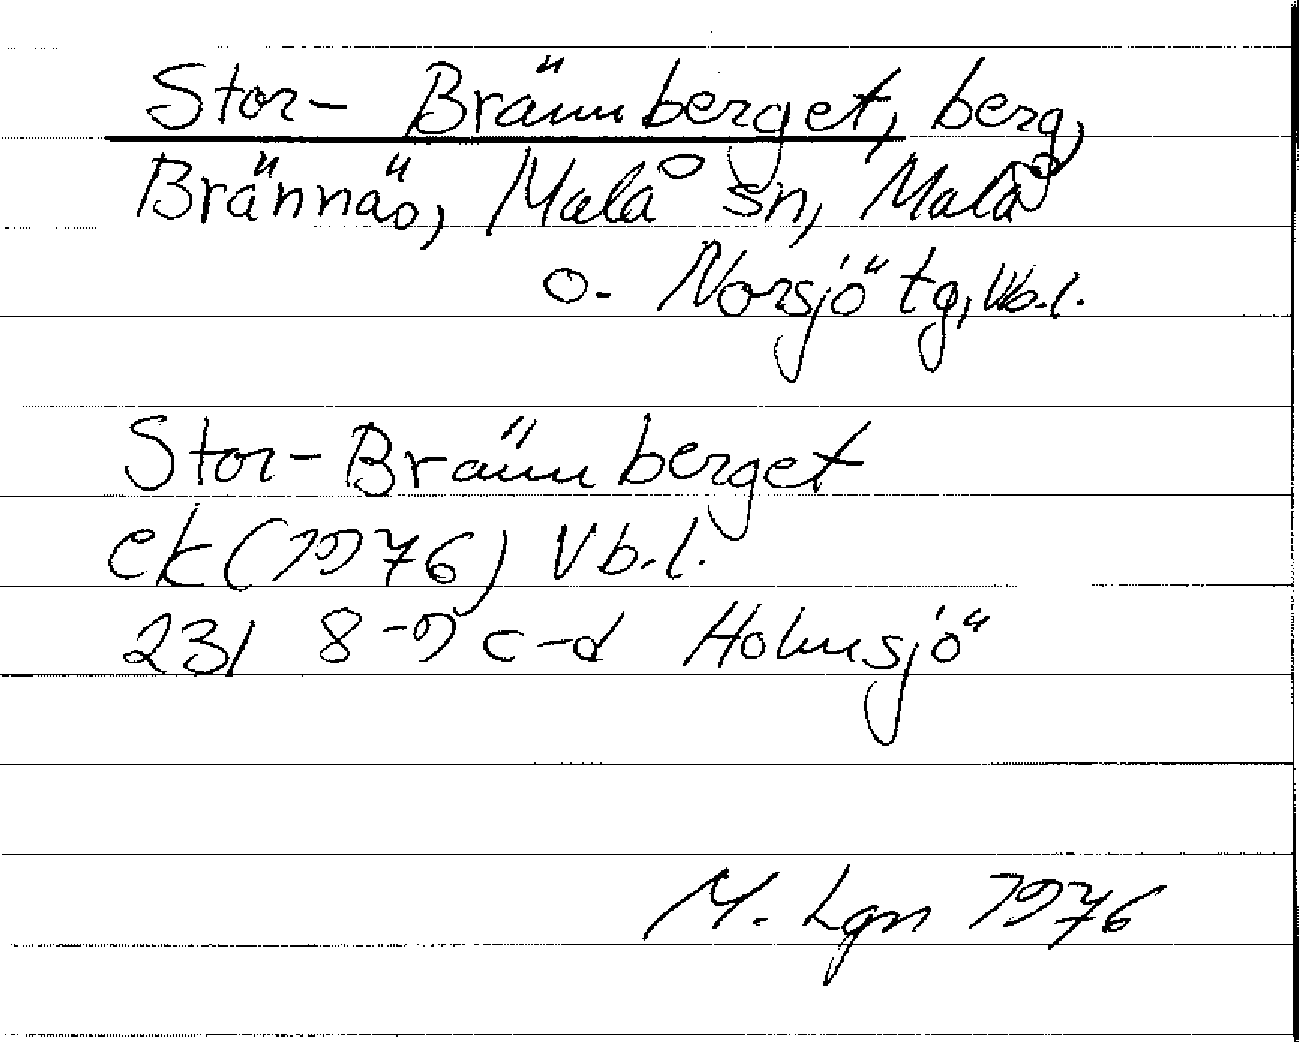 Stor-Brännberget, berg,
Brännäs, Malå sn, Malå
o. Norsjö tg, Vb.l.
Stor-Brännberget
ek (1976) Vb.l.
23I 8-9 c-d Holmsjö
M. Lgn 1976